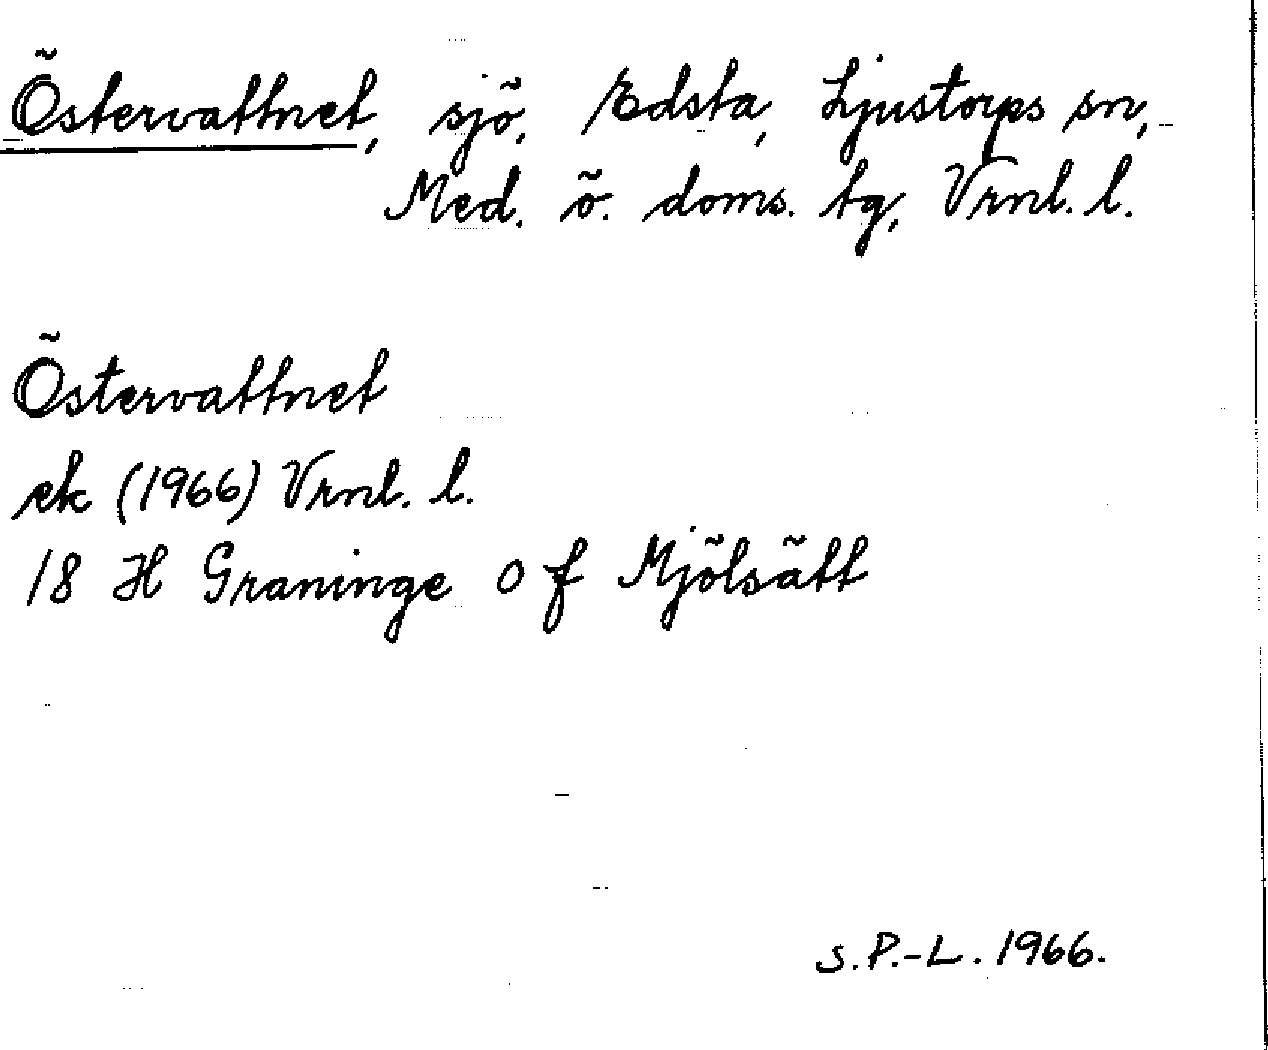 Östervattnet, sjö, Edsta, Ljustorps sn,
Med. ö. doms. tg, Vrnl. l.
Östervattnet
ek (1966) Vrnl. l.
18 H Graninge o f Mjölsätt
S.P.-L. 1966.